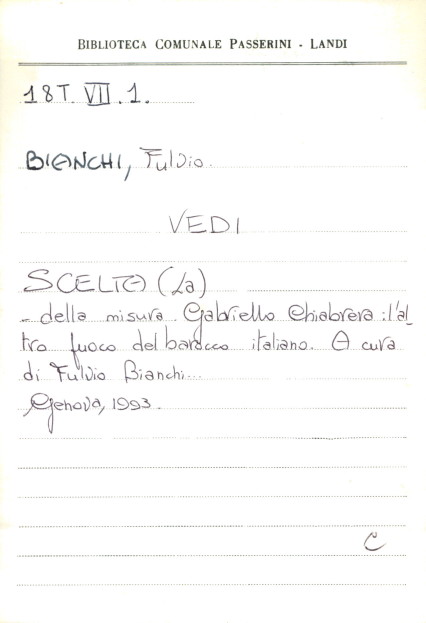 BIBLIOTECA COMUNALE PASSERINI - LANDI
18T. VII. 1.
BIANCHI, Fulvio.
VEDI
SCELTA (La)
- della misura. Gabriello Chiabrera: l'al_
tro fuoco del barocco italiano. A cura
di Fulvio Bianchi...
Genova, 1993.
C